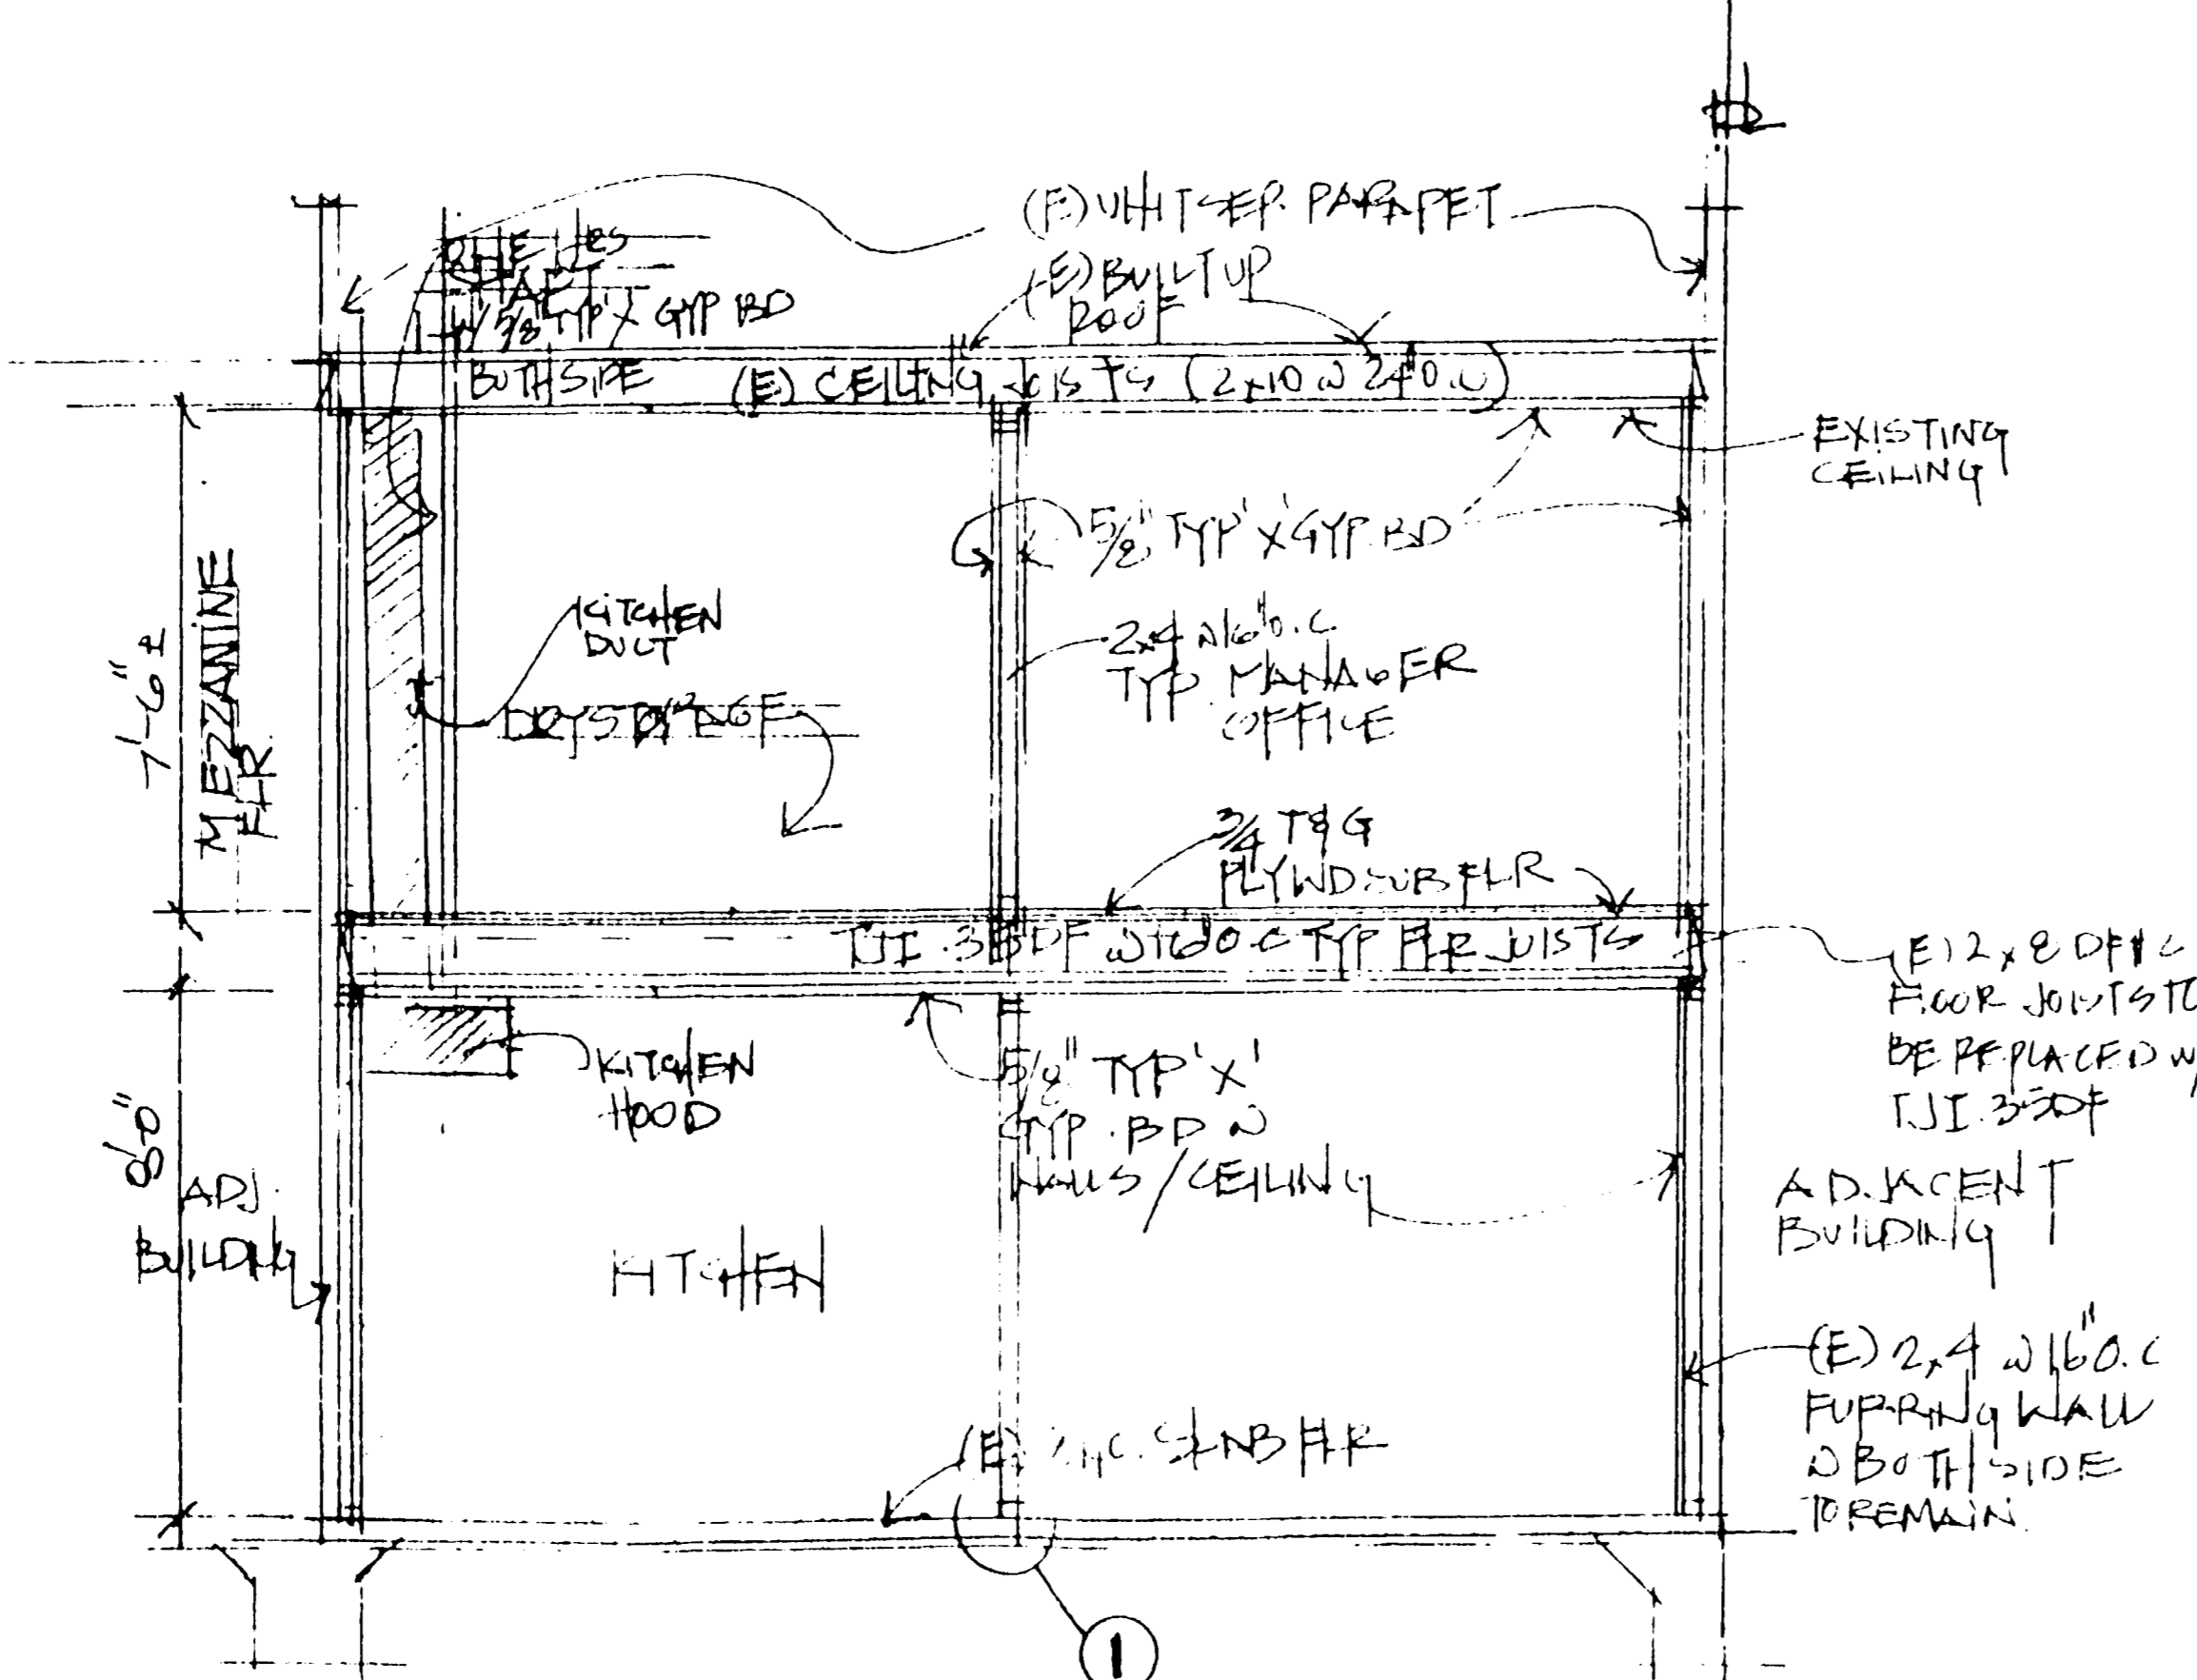 (E) UNIT SEP. PARAPET
(E) BUILT UP
ROOF
SHAFT
W/ 5/8" TYP 'X' GYP BD
BOTH SIDE
(E) CEILING JOISTS (2x10 @ 24" O.C)
EXISTING
CEILING
5/8" TYP 'X' GYP. BD
7'-6" ±
MEZZANINE
FLR.
KITCHEN
DUCT
DRY STORAGE
2x4 @ 16" O.C.
TYP. MANAGER
OFFICE
3/4 T&G
PLYWD SUB FLR
TJI @ 16" O.C TYP FLR JOISTS
(E) 2x8 DF
FLOOR JOISTS TO
BE REPLACED W/
TJI
KITCHEN
HOOD
5/8" TYP 'X'
GYP. BD @
WALLS / CEILING
8'-0"
ADJ.
BUILDING
KITCHEN
ADJACENT
BUILDING
(E) 2x4 @ 16" O.C
FURRING WALL
@ BOTH SIDE
TO REMAIN.
(E) SLAB FLR
1